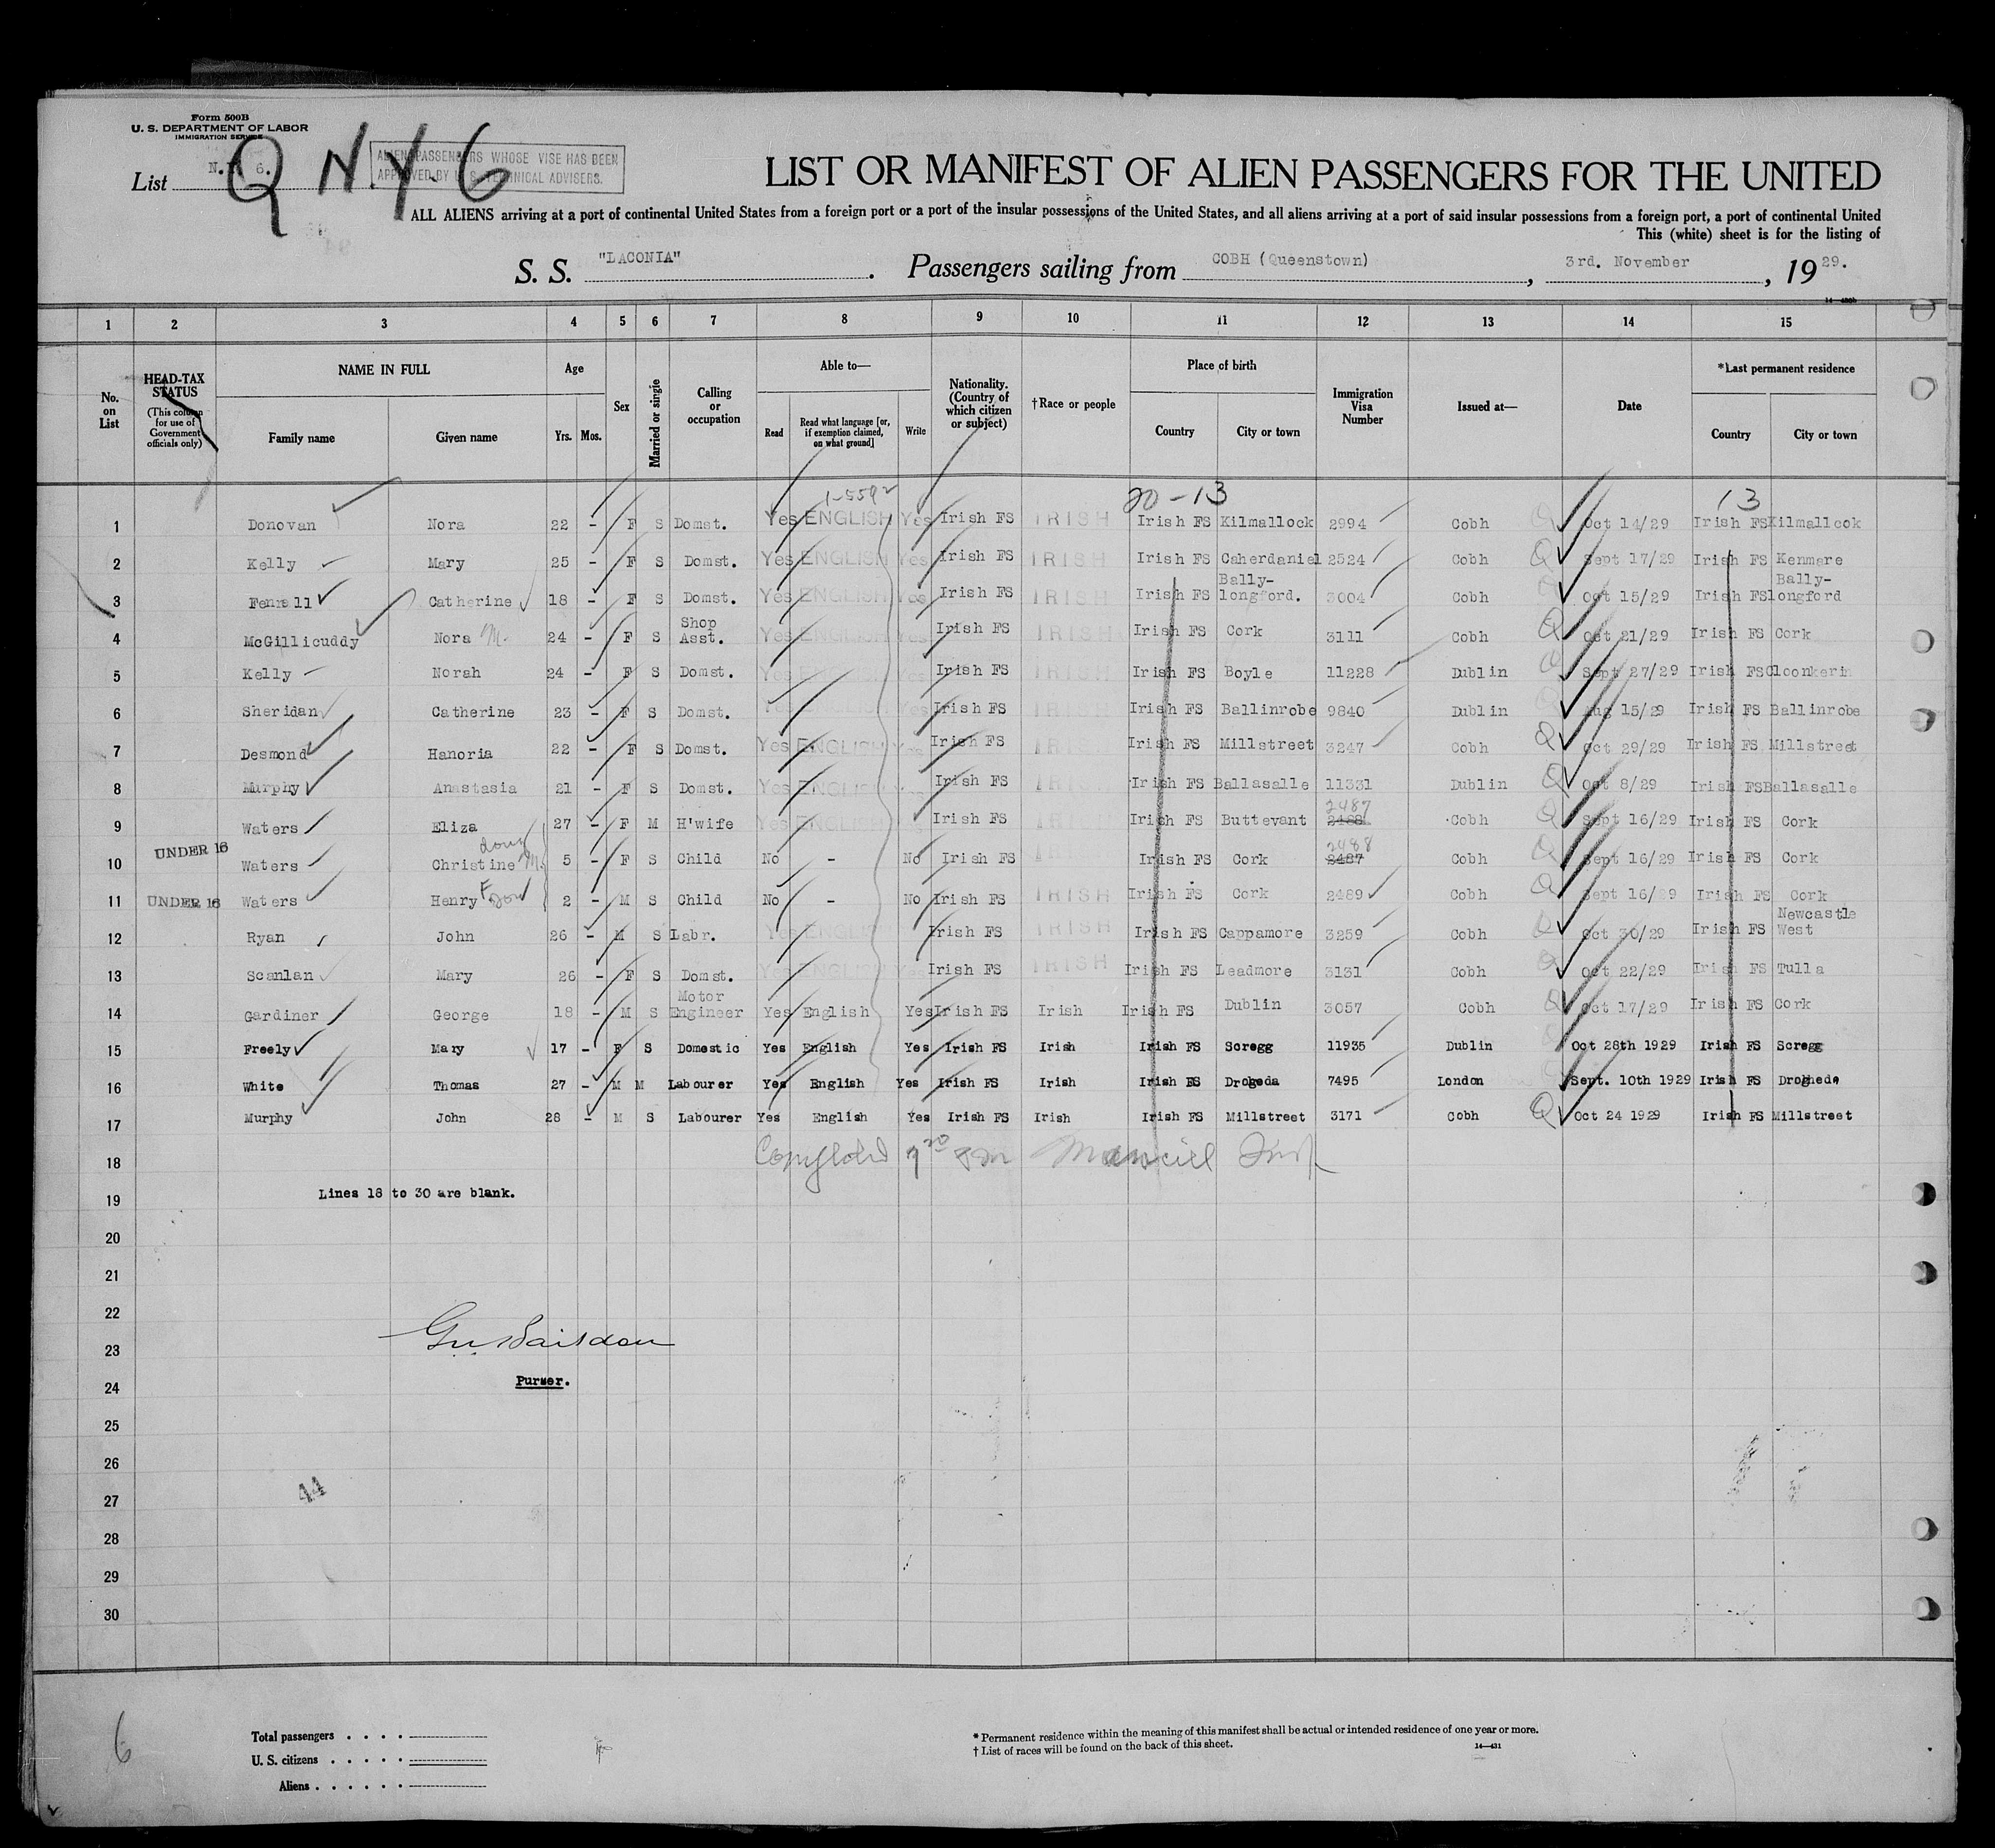 Form 500B
U. S. DEPARTMENT OF LABOR
IMMIGRATION SERVICE
List N.Y. 6.
Q N.Y. 6
ALIEN PASSENGERS WHOSE VISE HAS BEEN
APPROVED BY U. S. TECHNICAL ADVISERS.
LIST OR MANIFEST OF ALIEN PASSENGERS FOR THE UNITED
ALL ALIENS arriving at a port of continental United States from a foreign port or a port of the insular possessions of the United States, and all aliens arriving at a port of said insular possessions from a foreign port, a port of continental United
This (white) sheet is for the listing of
S. S. "LACONIA" . Passengers sailing from COBH (Queenstown) , 3rd. November , 19 29.
14—430b
1 2 3 4 5 6 7 8 9 10 11 12 13 14 15
No. on List
HEAD-TAX STATUS (This column for use of Government officials only)
NAME IN FULL Family name Given name
Age Yrs. Mos.
Sex
Married or single
Calling or occupation
Able to— Read Read what language [or, if exemption claimed, on what ground] Write
Nationality. (Country of which citizen or subject)
†Race or people
Place of birth Country City or town
Immigration Visa Number
Issued at—
Date
*Last permanent residence Country City or town
1-5592 20-13 13
1 Donovan Nora 22 - F S Domst. Yes ENGLISH Yes Irish FS IRISH Irish FS Kilmallock 2994 Cobh Oct 14/29 Irish FS Kilmallcok
2 Kelly Mary 25 - F S Domst. Yes ENGLISH Yes Irish FS IRISH Irish FS Caherdaniel 2524 Cobh Q Sept 17/29 Irish FS Kenmere
3 Catherine 18 - F S Domst. Yes ENGLISH Yes Irish FS IRISH Irish FS Bally-longford. 3004 Cobh Oct 15/29 Irish FS Bally-longford
4 McGillicuddy Nora M. 24 - F S Shop Asst. Yes ENGLISH Yes Irish FS IRISH Irish FS Cork 3111 Cobh Q Oct 21/29 Irish FS Cork
5 Kelly Norah 24 - F S Domst. Yes ENGLISH Yes Irish FS IRISH Irish FS Boyle 11228 Dublin Q Sept 27/29 Irish FS
6 Sheridan Catherine 23 - F S Domst. Yes ENGLISH Yes Irish FS IRISH Irish FS Ballinrobe 9840 Dublin Aug 15/29 Irish FS Ballinrobe
7 Desmond Hanoria 22 - F S Domst. Yes ENGLISH Yes Irish FS IRISH Irish FS Millstreet 3247 Cobh Q Oct 29/29 Irish FS Millstreet
8 Murphy Anastasia 21 - F S Domst. Yes ENGLISH Yes Irish FS IRISH Irish FS Ballasalle 11331 Dublin Q Oct 8/29 Irish FS Ballasalle
9 Waters Eliza 27 - F M H'wife Yes ENGLISH Yes Irish FS IRISH Irish FS Buttevant 2487 2488 Cobh Q Sept 16/29 Irish FS Cork
10 UNDER 16 Waters Christine M. 5 - F S Child No - No Irish FS Irish FS Cork 2488 2487 Cobh Q Sept 16/29 Irish FS Cork
11 UNDER 16 Waters Henry F 2 - M S Child No - No Irish FS IRISH Irish FS Cork 2489 Cobh Q Sept 16/29 Irish FS Cork
12 Ryan John 26 - M S Labr. Yes ENGLISH Irish FS IRISH Irish FS Cappamore 3259 Cobh Q Oct 30/29 Irish FS Newcastle West
13 Scanlan Mary 26 - F S Domst. Yes ENGLISH Yes Irish FS IRISH Irish FS Leadmore 3131 Cobh Q Oct 22/29 Irish FS Tulla
14 Gardiner George 18 - M S Motor Engineer Yes English Yes Irish FS Irish Irish FS Dublin 3057 Cobh Q Oct 17/29 Irish FS Cork
15 Freely Mary 17 - F S Domestic Yes English Yes Irish FS Irish Irish FS Scregg 11935 Dublin Oct 28th 1929 Irish FS Scregg
16 White Thomas 27 - M M Labourer Yes English Yes Irish FS Irish Irish FS Drogeda 7495 London Sept. 10th 1929 Irish FS
17 Murphy John 28 - M S Labourer Yes English Yes Irish FS Irish Irish FS Millstreet 3171 Cobh Q Oct 24 1929 Irish FS Millstreet
18
19 Lines 18 to 30 are blank.
20
21
22
23
Purser.
24
25
26
27 44
28
29
30
6
Total passengers
U. S. citizens
Aliens
* Permanent residence within the meaning of this manifest shall be actual or intended residence of one year or more.
† List of races will be found on the back of this sheet.
14—431